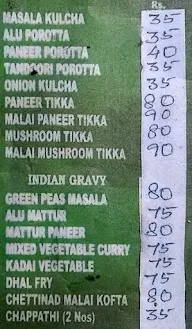 Rs.
MASALA KULCHA 35
ALU POROTTA 35
PANEER POROTTA 40
TANDOORI POROTTA 35
ONION KULCHA 35
PANEER TIKKA 80
MALAI PANEER TIKKA 90
MUSHROOM TIKKA 80
MALAI MUSHROOM TIKKA 90
INDIAN GRAVY
GREEN PEAS MASALA 80
ALU MATTUR 75
MATTUR PANEER 80
MIXED VEGETABLE CURRY 75
KADAI VEGETABLE 75
DHAL FRY 75
CHETTINAD MALAI KOFTA 80
CHAPPATHI (2 Nos) 35